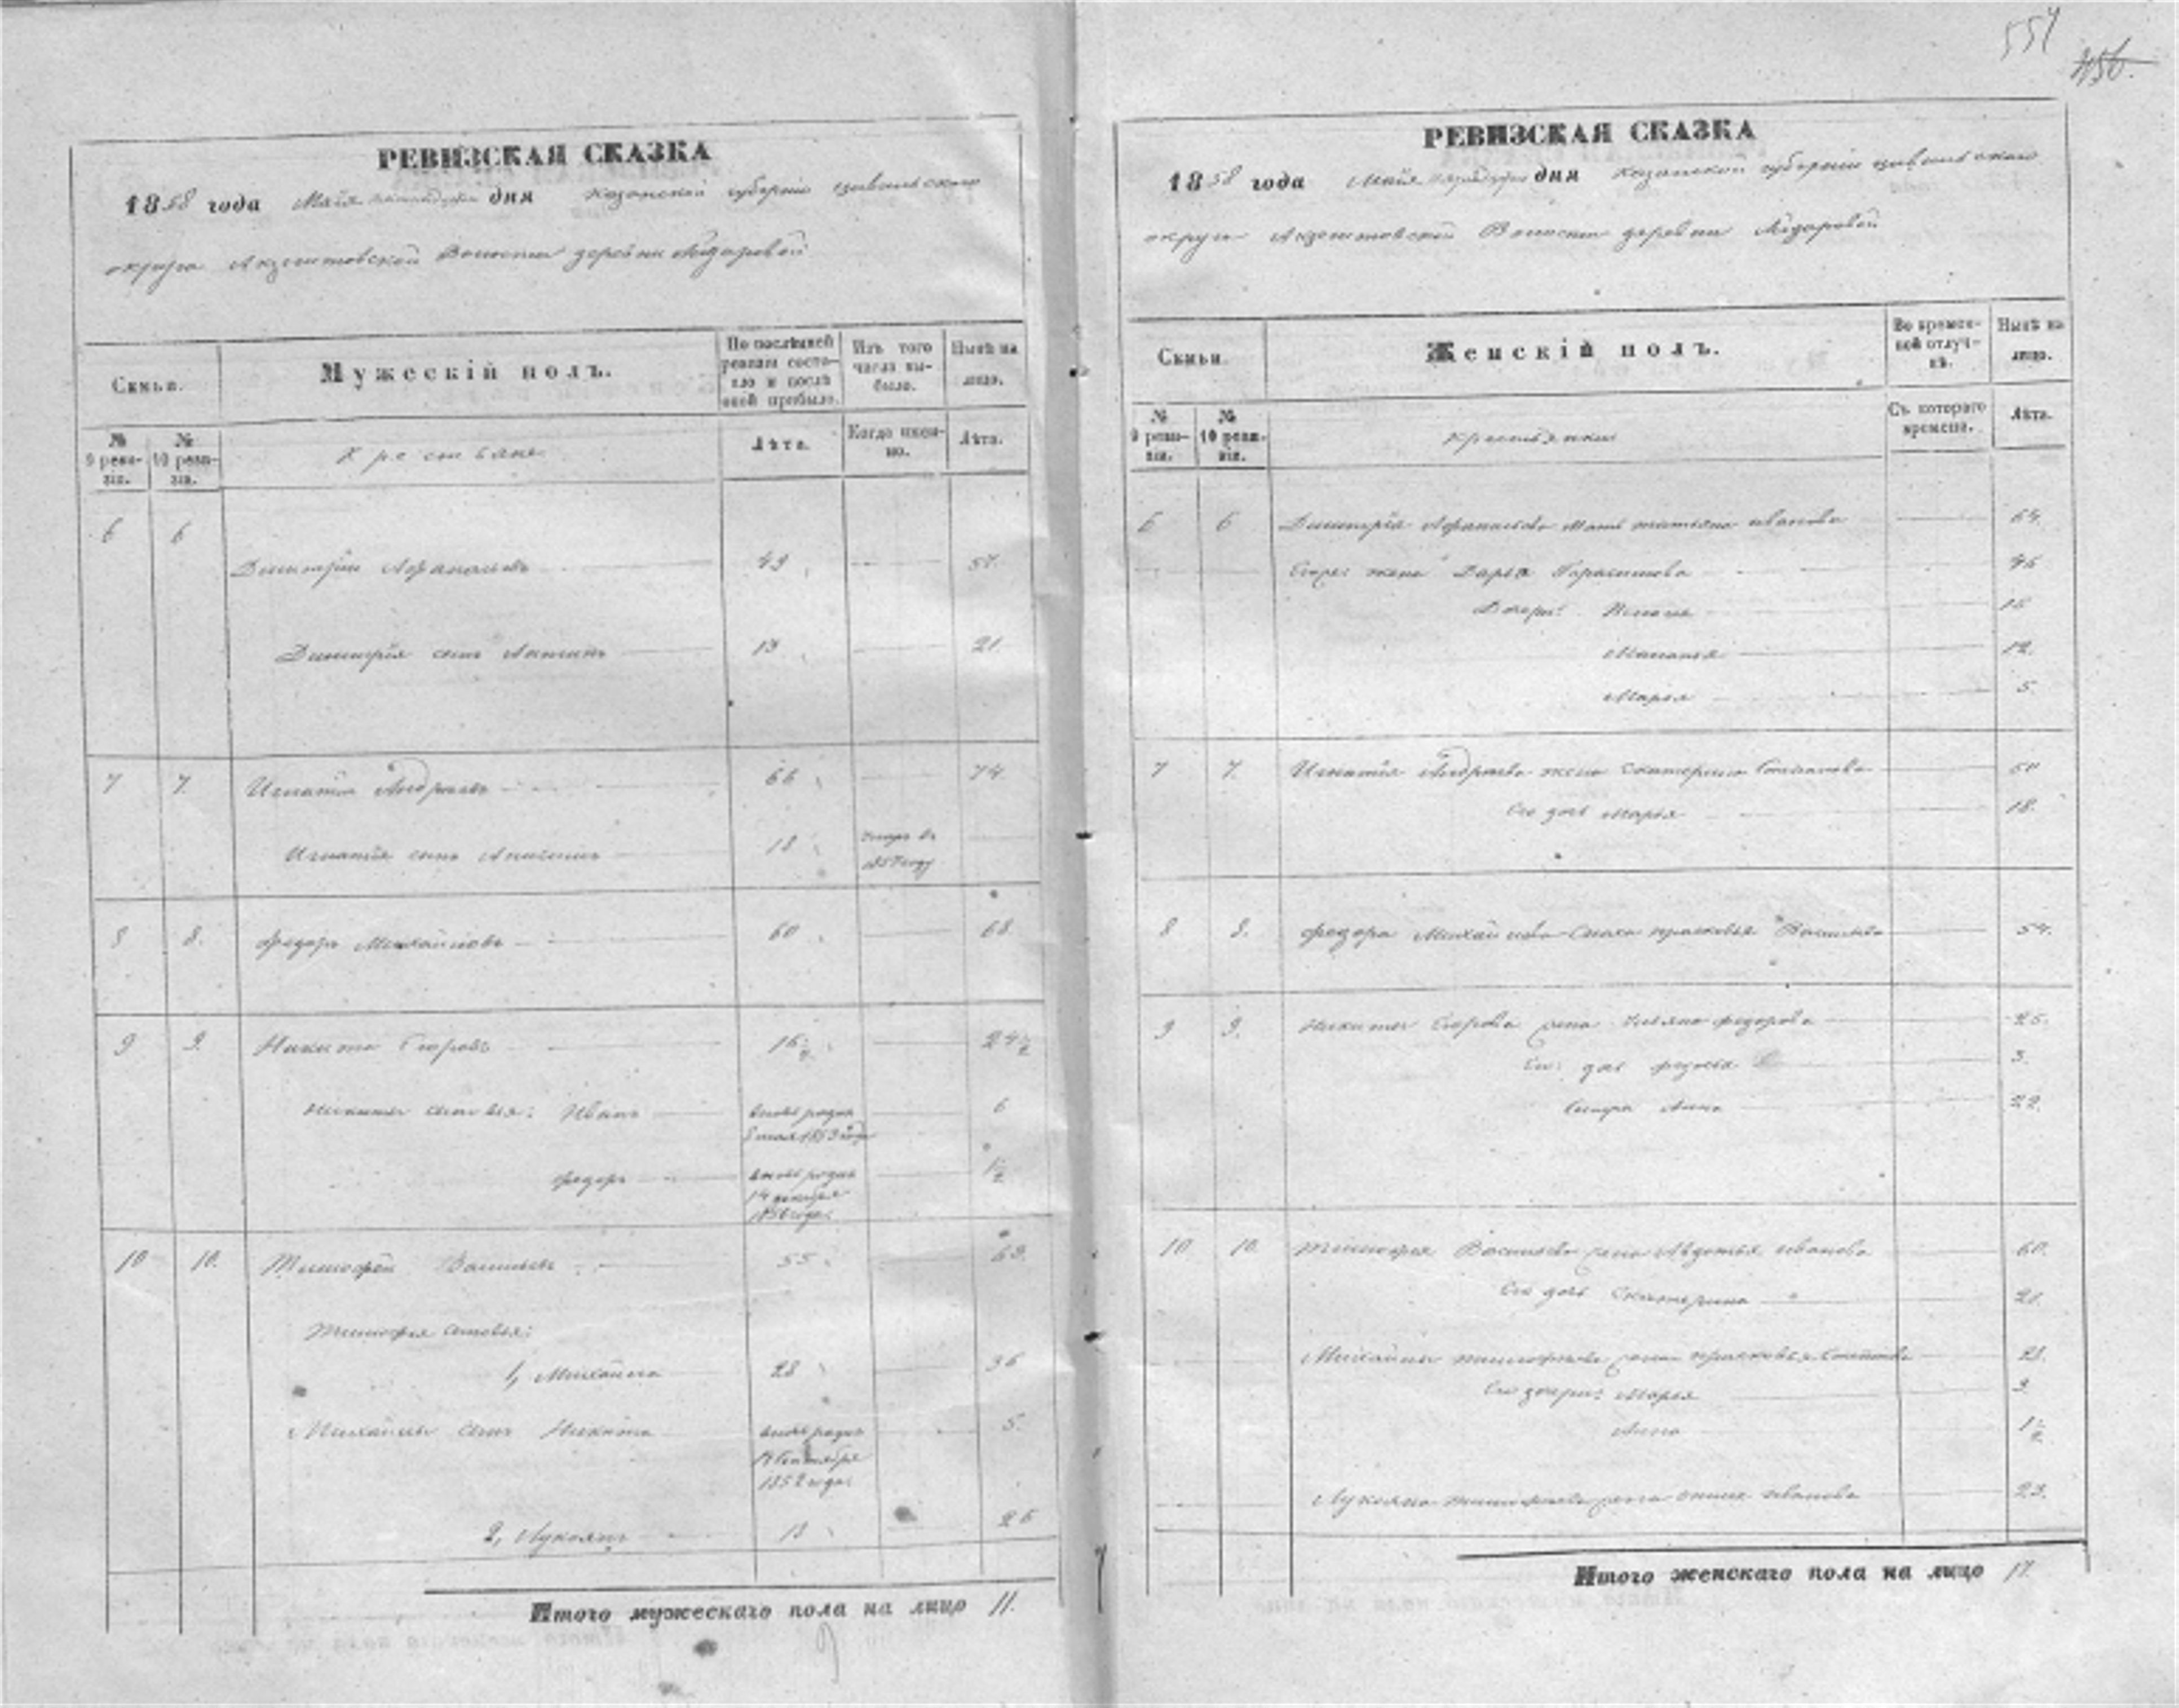 554
456.
РЕВИЗСКАЯ СКАЗКА
1858 года Майя дня Казанской губернiи Цивильскаго
округа Акзегитовской Волости деревни Айдаровой
Семьи.
Мужескiй полъ.
По последней ревизiи состояло и после оной прибыло.
Изъ того числа выбыло.
Ныне на лицо.
№ 9 ревизiи.
№ 10 ревизiи.
Крестьяне
Лета.
Когда именно.
Лета.
6 6
Димитрiй Афанасьевъ 49 57.
Димитрiя сынъ Антипъ 13 21.
7 7. Игнатiй Андреевъ 66 74.
Игнатiя сынъ 18 умеръ въ 1857 году
8 8. Федоръ Михайловъ 60 68.
9 9. Никита Егоровъ 16½ 24½
Никиты сыновья: Иванъ вновь рожденъ 1853 года 6
Федоръ вновь рожденъ 14 1½
10 10. Тимофей Васильевъ 55 63.
Тимофея сыновья:
1, Михайла 28 36
Михайлы сынъ Никита вновь рожденъ Сентября 1852 года 5.
2, Лукоянъ 26
Итого мужескаго пола на лицо 11.
РЕВИЗСКАЯ СКАЗКА
1858 года Майя дня Казанской губернiи Цивильскаго
округа Акзегитовской Волости деревни Айдаровой
Семьи.
Женскiй полъ.
Во временной отлучке.
Ныне на лицо.
№ 9 ревизiи.
№ 10 ревизiи.
Крестьянки
Съ котораго времени.
Лета.
6 6 Димитрiя Афанасьева мать Татьяна Иванова 64.
жена Дарья Герасимова 46
Дочери: 15
Маланья 12.
Марья 5.
7 7. Игнатiя Андреева жена Екатерина Степанова
Его дочь Марья 18.
8 8. Федора Михайлова Сноха Прасковья Васильева 54.
9 9. Никиты Егорова жена Ульяна Федорова 25.
Его дочь Федосья 3.
Сестра Анна 22.
10 10. Тимофея Васильева жена Авдотья Иванова 60.
Его дочь Екатерина 21.
Михайлы Тимофеева жена Прасковья
Его дочери: Марья 3.
Анна 1½
Лукояна Тимофеева жена Иванова 23.
Итого женскаго пола на лицо 17.